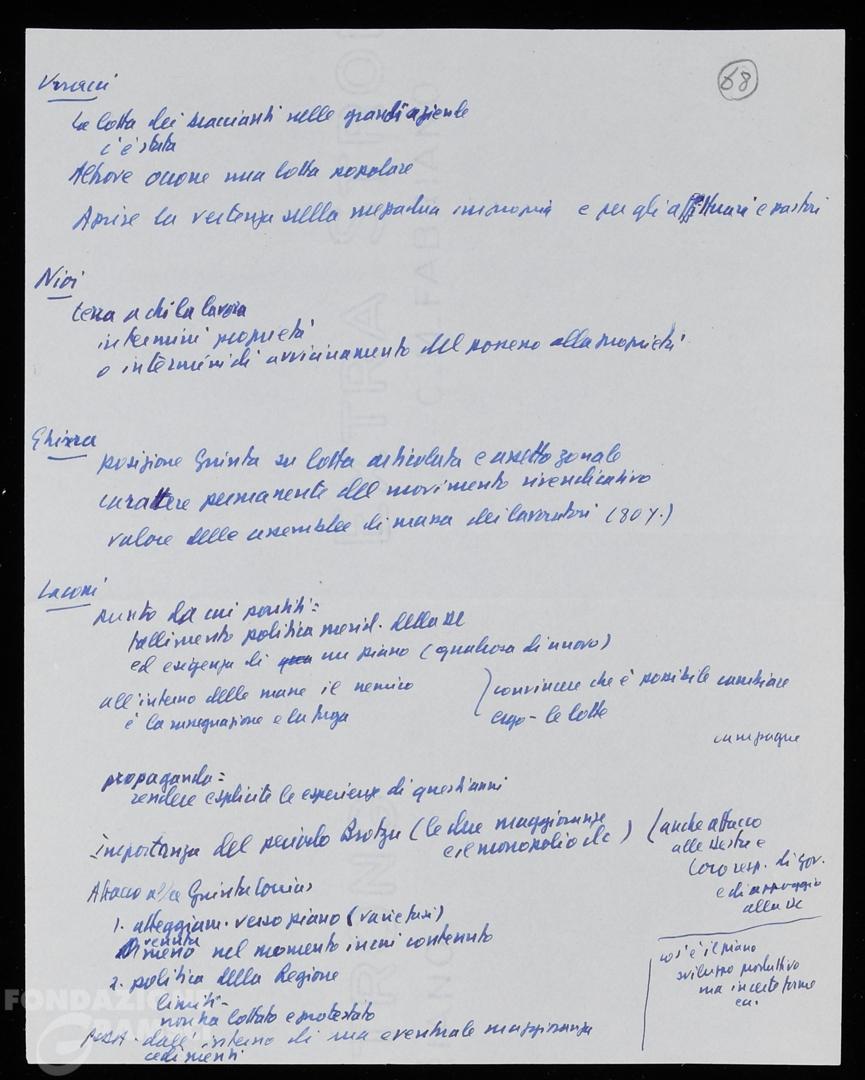 68
La lotta dei braccianti nelle grandi aziende
c'è stata
Altrove occorre una lotta popolare
Aprire la vertenza sulla mezzadria impropria e per gli affittuari e pastori
Nioi
terra a chi la lavora
in termini proprietà
o in termini di avvicinamento del possesso alla proprietà
Ghirra
posizione giunta su lotta articolata e assetto zonale
carattere permanente del movimento rivendicativo
valore delle assemblee di massa dei lavoratori (80%)
Laconi
punto da cui partiti =
fallimento politica merid. della DC
ed esigenza di un piano (qualcosa di nuovo)
all'interno delle masse il nemico
è la rassegnazione e la fuga
convincere che è possibile cambiare
ergo - le lotte
campagne
propaganda =
rendere esplicite le esperienze di questi anni
importanza del periodo Brotzu (le due maggioranze
e il monopolio dc)
(anche attacco
alle destre e
loro resp. di gov.
e di appoggio
alla DC
Attacco alla Giunta Corrias
1. atteggiam. verso piano (varie tesi)
venuta meno nel momento in cui contenuto
2. politica della Regione
limiti -
non ha lottato e protestato
PSDA - dall'interno di una eventuale maggioranza
cedimenti
cos'è il piano
sviluppo produttivo
ma in certe forme
ec.
FONDAZIONE
GRAMSCI